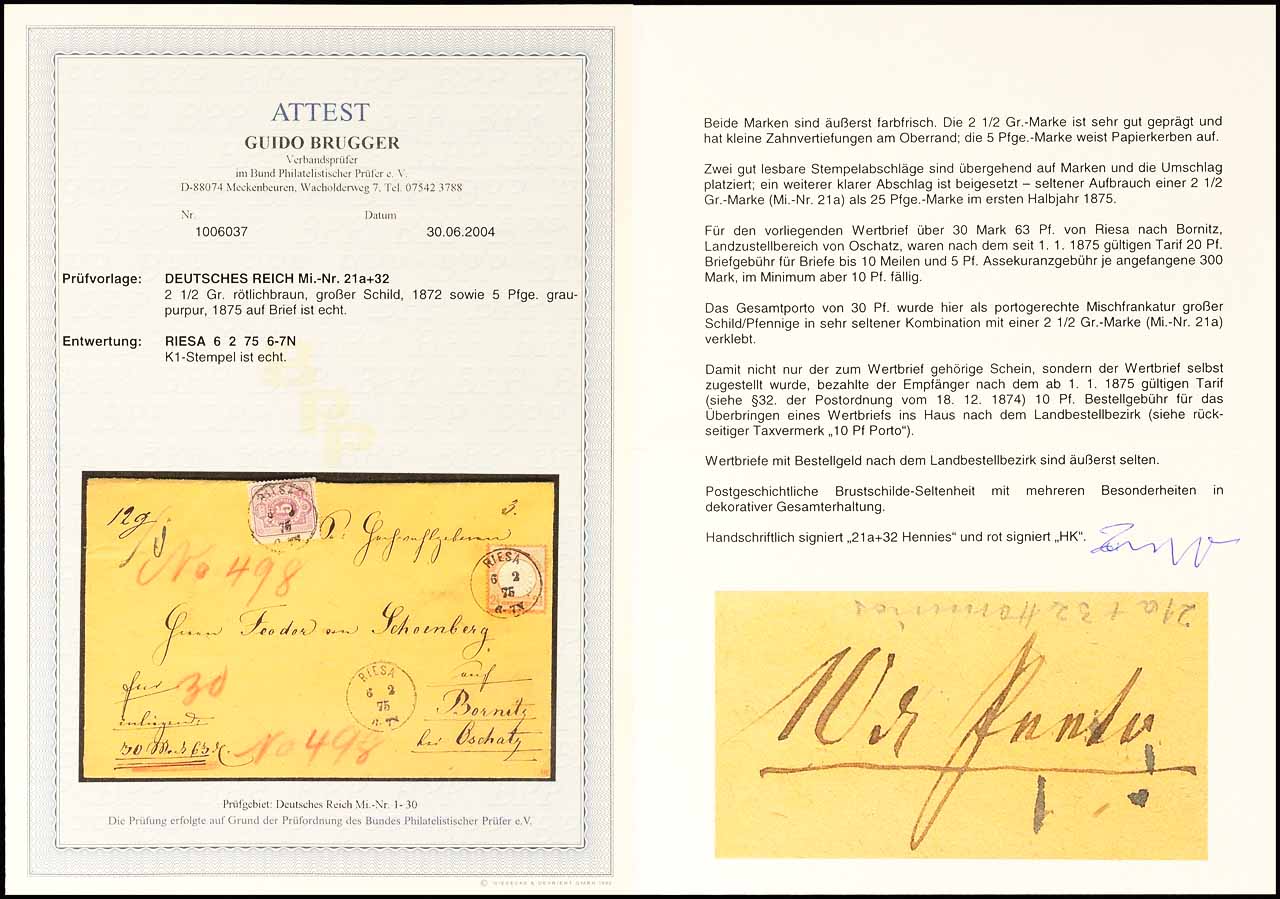 ATTEST
GUIDO BRUGGER
Verbandsprüfer
im Bund Philatelistischer Prüfer e. V.
D-88074 Meckenbeuren, Wacholderweg 7, Tel. 07542 3788
Nr. Datum
1006037 30.06.2004
Prüfvorlage: DEUTSCHES REICH Mi.-Nr. 21a+32
2 1/2 Gr. rötlichbraun, großer Schild, 1872 sowie 5 Pfge. grau-
purpur, 1875 auf Brief ist echt.
Entwertung: RIESA 6 2 75 6-7N
K1-Stempel ist echt.
12g
3.
RIESA
6 2
75
6-7N
No 498
RIESA
6 2
75
6-7N
Herrn Feodor von Schoenberg
auf
Bornitz
bei Oschatz
für 30
inliegende
30 M. 63
No 498
RIESA
6 2
75
6-7N
Prüfgebiet: Deutsches Reich Mi.-Nr. 1- 30
Die Prüfung erfolgte auf Grund der Prüfordnung des Bundes Philatelistischer Prüfer e.V.
© GIESECKE & DEVRIENT GMBH
Beide Marken sind äußerst farbfrisch. Die 2 1/2 Gr.-Marke ist sehr gut geprägt und
hat kleine Zahnvertiefungen am Oberrand; die 5 Pfge.-Marke weist Papierkerben auf.
Zwei gut lesbare Stempelabschläge sind übergehend auf Marken und die Umschlag
platziert; ein weiterer klarer Abschlag ist beigesetzt – seltener Aufbrauch einer 2 1/2
Gr.-Marke (Mi.-Nr. 21a) als 25 Pfge.-Marke im ersten Halbjahr 1875.
Für den vorliegenden Wertbrief über 30 Mark 63 Pf. von Riesa nach Bornitz,
Landzustellbereich von Oschatz, waren nach dem seit 1. 1. 1875 gültigen Tarif 20 Pf.
Briefgebühr für Briefe bis 10 Meilen und 5 Pf. Assekuranzgebühr je angefangene 300
Mark, im Minimum aber 10 Pf. fällig.
Das Gesamtporto von 30 Pf. wurde hier als portogerechte Mischfrankatur großer
Schild/Pfennige in sehr seltener Kombination mit einer 2 1/2 Gr.-Marke (Mi.-Nr. 21a)
verklebt.
Damit nicht nur der zum Wertbrief gehörige Schein, sondern der Wertbrief selbst
zugestellt wurde, bezahlte der Empfänger nach dem ab 1. 1. 1875 gültigen Tarif
(siehe §32. der Postordnung vom 18. 12. 1874) 10 Pf. Bestellgebühr für das
Überbringen eines Wertbriefs ins Haus nach dem Landbestellbezirk (siehe rück-
seitiger Taxvermerk „10 Pf Porto“).
Wertbriefe mit Bestellgeld nach dem Landbestellbezirk sind äußerst selten.
Postgeschichtliche Brustschilde-Seltenheit mit mehreren Besonderheiten in
dekorativer Gesamterhaltung.
Handschriftlich signiert „21a+32 Hennies“ und rot signiert „HK“.
21a + 32 Hennies
10 Porto